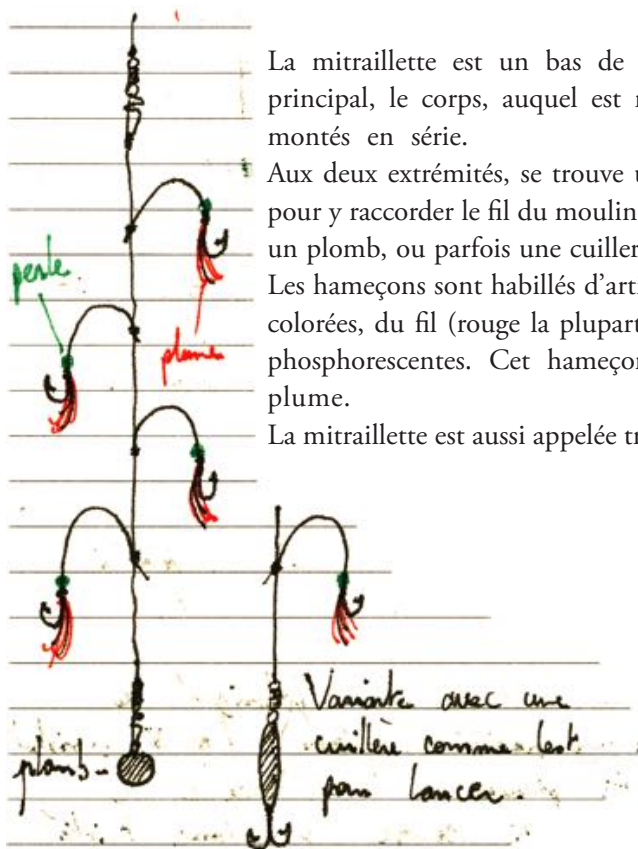 La mitraillette est un bas de
principal, le corps, auquel est
montés en série.
Aux deux extrémités, se trouve
pour y raccorder le fil du moulin
un plomb, ou parfois une cuiller
Les hameçons sont habillés
colorées, du fil (rouge la plupart
phosphorescentes. Cet hameçon
plume.
La mitraillette est aussi appelée
perle
plume
Variante avec une
cuillère comme lest
pour lancer.
plomb